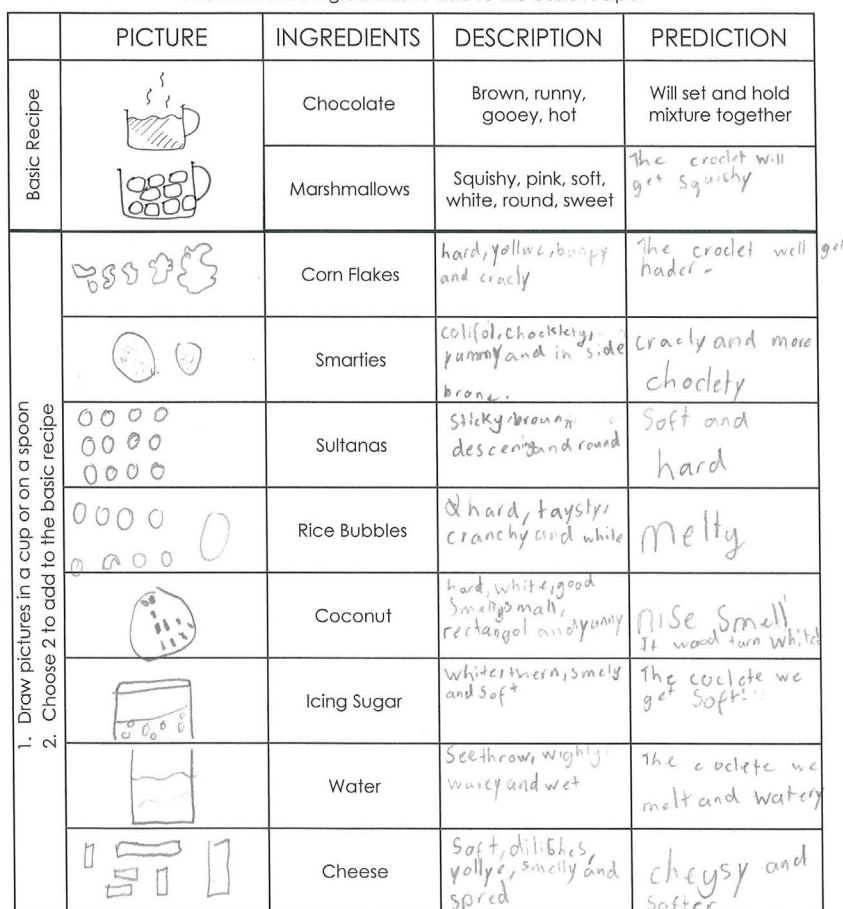 PICTURE INGREDIENTS DESCRIPTION PREDICTION
Basic Recipe
Chocolate
Brown, runny,
gooey, hot
Will set and hold
mixture together
Marshmallows
Squishy, pink, soft,
white, round, sweet
The croclet will
get Squishy
1. Draw pictures in a cup or on a spoon
2. Choose 2 to add to the basic recipe
Corn Flakes
hard, yollwe, bumpy
and cracly
The croclet well get
hader.
Smarties
colifol, chocklety,
yummy and in side
brone.
cracly and more
choclety
Sultanas
Sticky, broun,
and round
Soft and
hard
Rice Bubbles
hard, taysty,
cranchy and white
melty
Coconut
hard, white, good
Smelly, small,
rectangol and yummy
nise Smell
It wood turn white
Icing Sugar
white, smely
and soft
The coclete we
get Soft!
Water
Seethrow,
and wet
The coclete we
melt and watery
Cheese
Soft, dilishes,
yollye, smelly and
spred
cheysy and
Softer